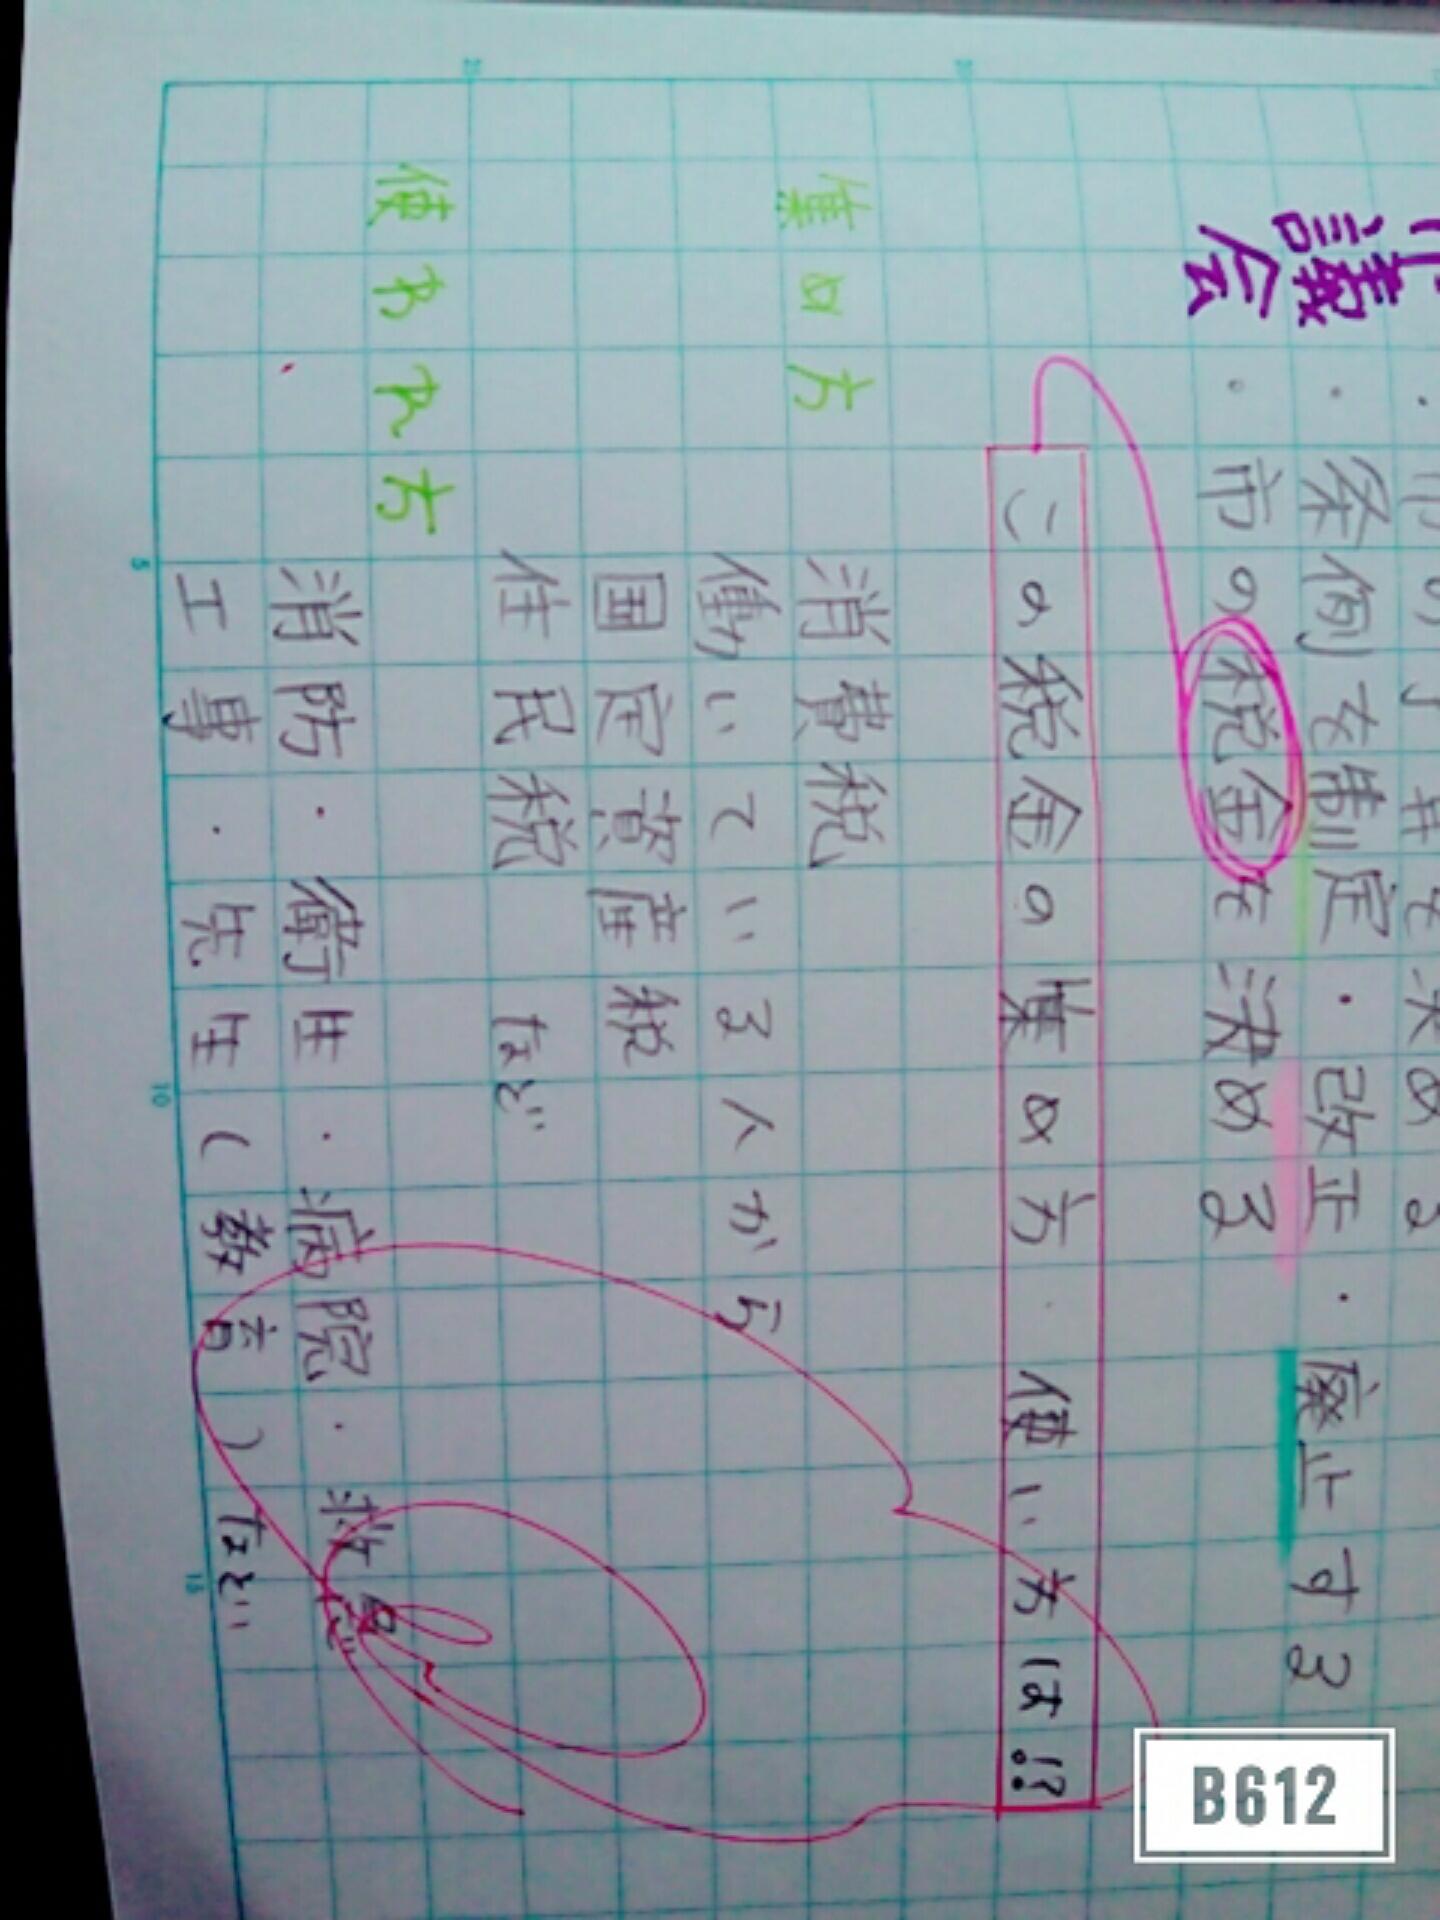 市議会
・条例を制定・改正・廃止する
・市の税金を決める
この税金の集め方・使い方は!?
集め方
消費税
働いている人から
国定資産税
住民税 など
使われ方
消防・衛生・病院・救急
工事・共生(教育)など
B612